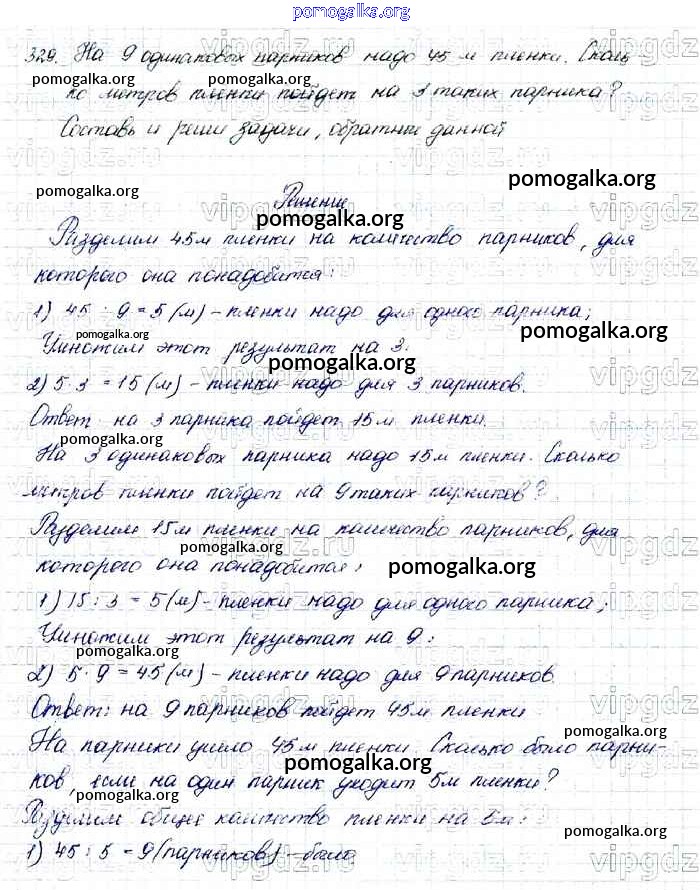 pomogalka.org
329. На 9 одинаковых парников надо 45 м пленки. Сколь-
ко метров пленки пойдет на 3 таких парника?
Составь и реши задачи, обратные данной
pomogalka.org
pomogalka.org
Решение
pomogalka.org
Разделим 45м пленки на количество парников, для
которого она понадобится:
1) 45 : 9 = 5 (м) – пленки надо для одного парника;
pomogalka.org
pomogalka.org
Умножим этот результат на 3:
pomogalka.org
2) 5 · 3 = 15 (м) – пленки надо для 3 парников.
Ответ: на 3 парника пойдет 15 м пленки.
pomogalka.org
На 3 одинаковых парника надо 15 м пленки. Сколько
метров пленки пойдет на 9 таких парников?
Разделим 15м пленки на количество парников, для
pomogalka.org
которого она понадобится:
pomogalka.org
1) 15 : 3 = 5 (м) – пленки надо для одного парника;
Умножим этот результат на 9:
pomogalka.org
2) 5 · 9 = 45 (м) – пленки надо для 9 парников.
Ответ: на 9 парников пойдет 45м пленки
pomogalka.org
На парники ушло 45м пленки. Сколько было парни-
pomogalka.org
ков, если на один парник уходит 5м пленки?
pomogalka.org
Разделим общее количество пленки на 5м:
pomogalka.org
1) 45 : 5 = 9 (парников) – было
pomogalka.org
vipgdz.ru